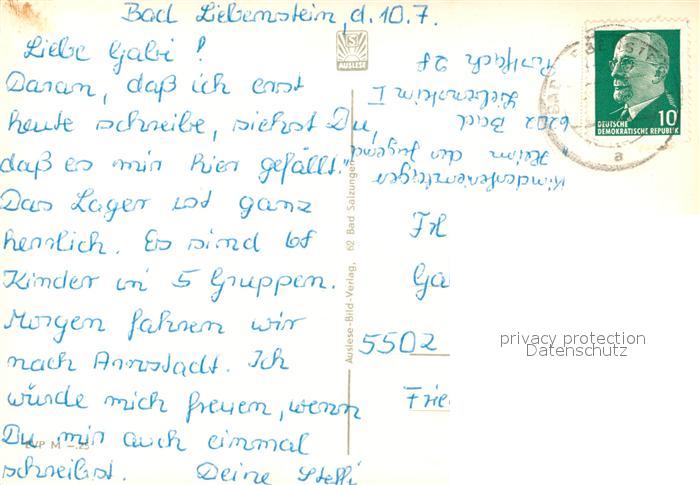 Bad Liebenstein, d. 10.7.
Liebe Gabi!
Daran, daß ich erst
heute schreibe, siehst Du,
daß es mir hier gefällt.
Das Lager ist ganz
herrlich. Es sind
Kinder in 5 Gruppen.
Morgen fahren wir
nach Arnstadt. Ich
würde mich freuen, wenn
Du mir auch einmal
schreibst. Deine Steffi
EVP M -.25
AUSLESE
Auslese-Bild-Verlag, 62 Bad Salzungen
Kinderferienlager
"Heim der Jugend"
6202 Bad
Liebenstein I
Postfach 28
DEUTSCHE
DEMOKRATISCHE REPUBLIK
10
a
Frl
Ga
5502
Frie
privacy protection
Datenschutz